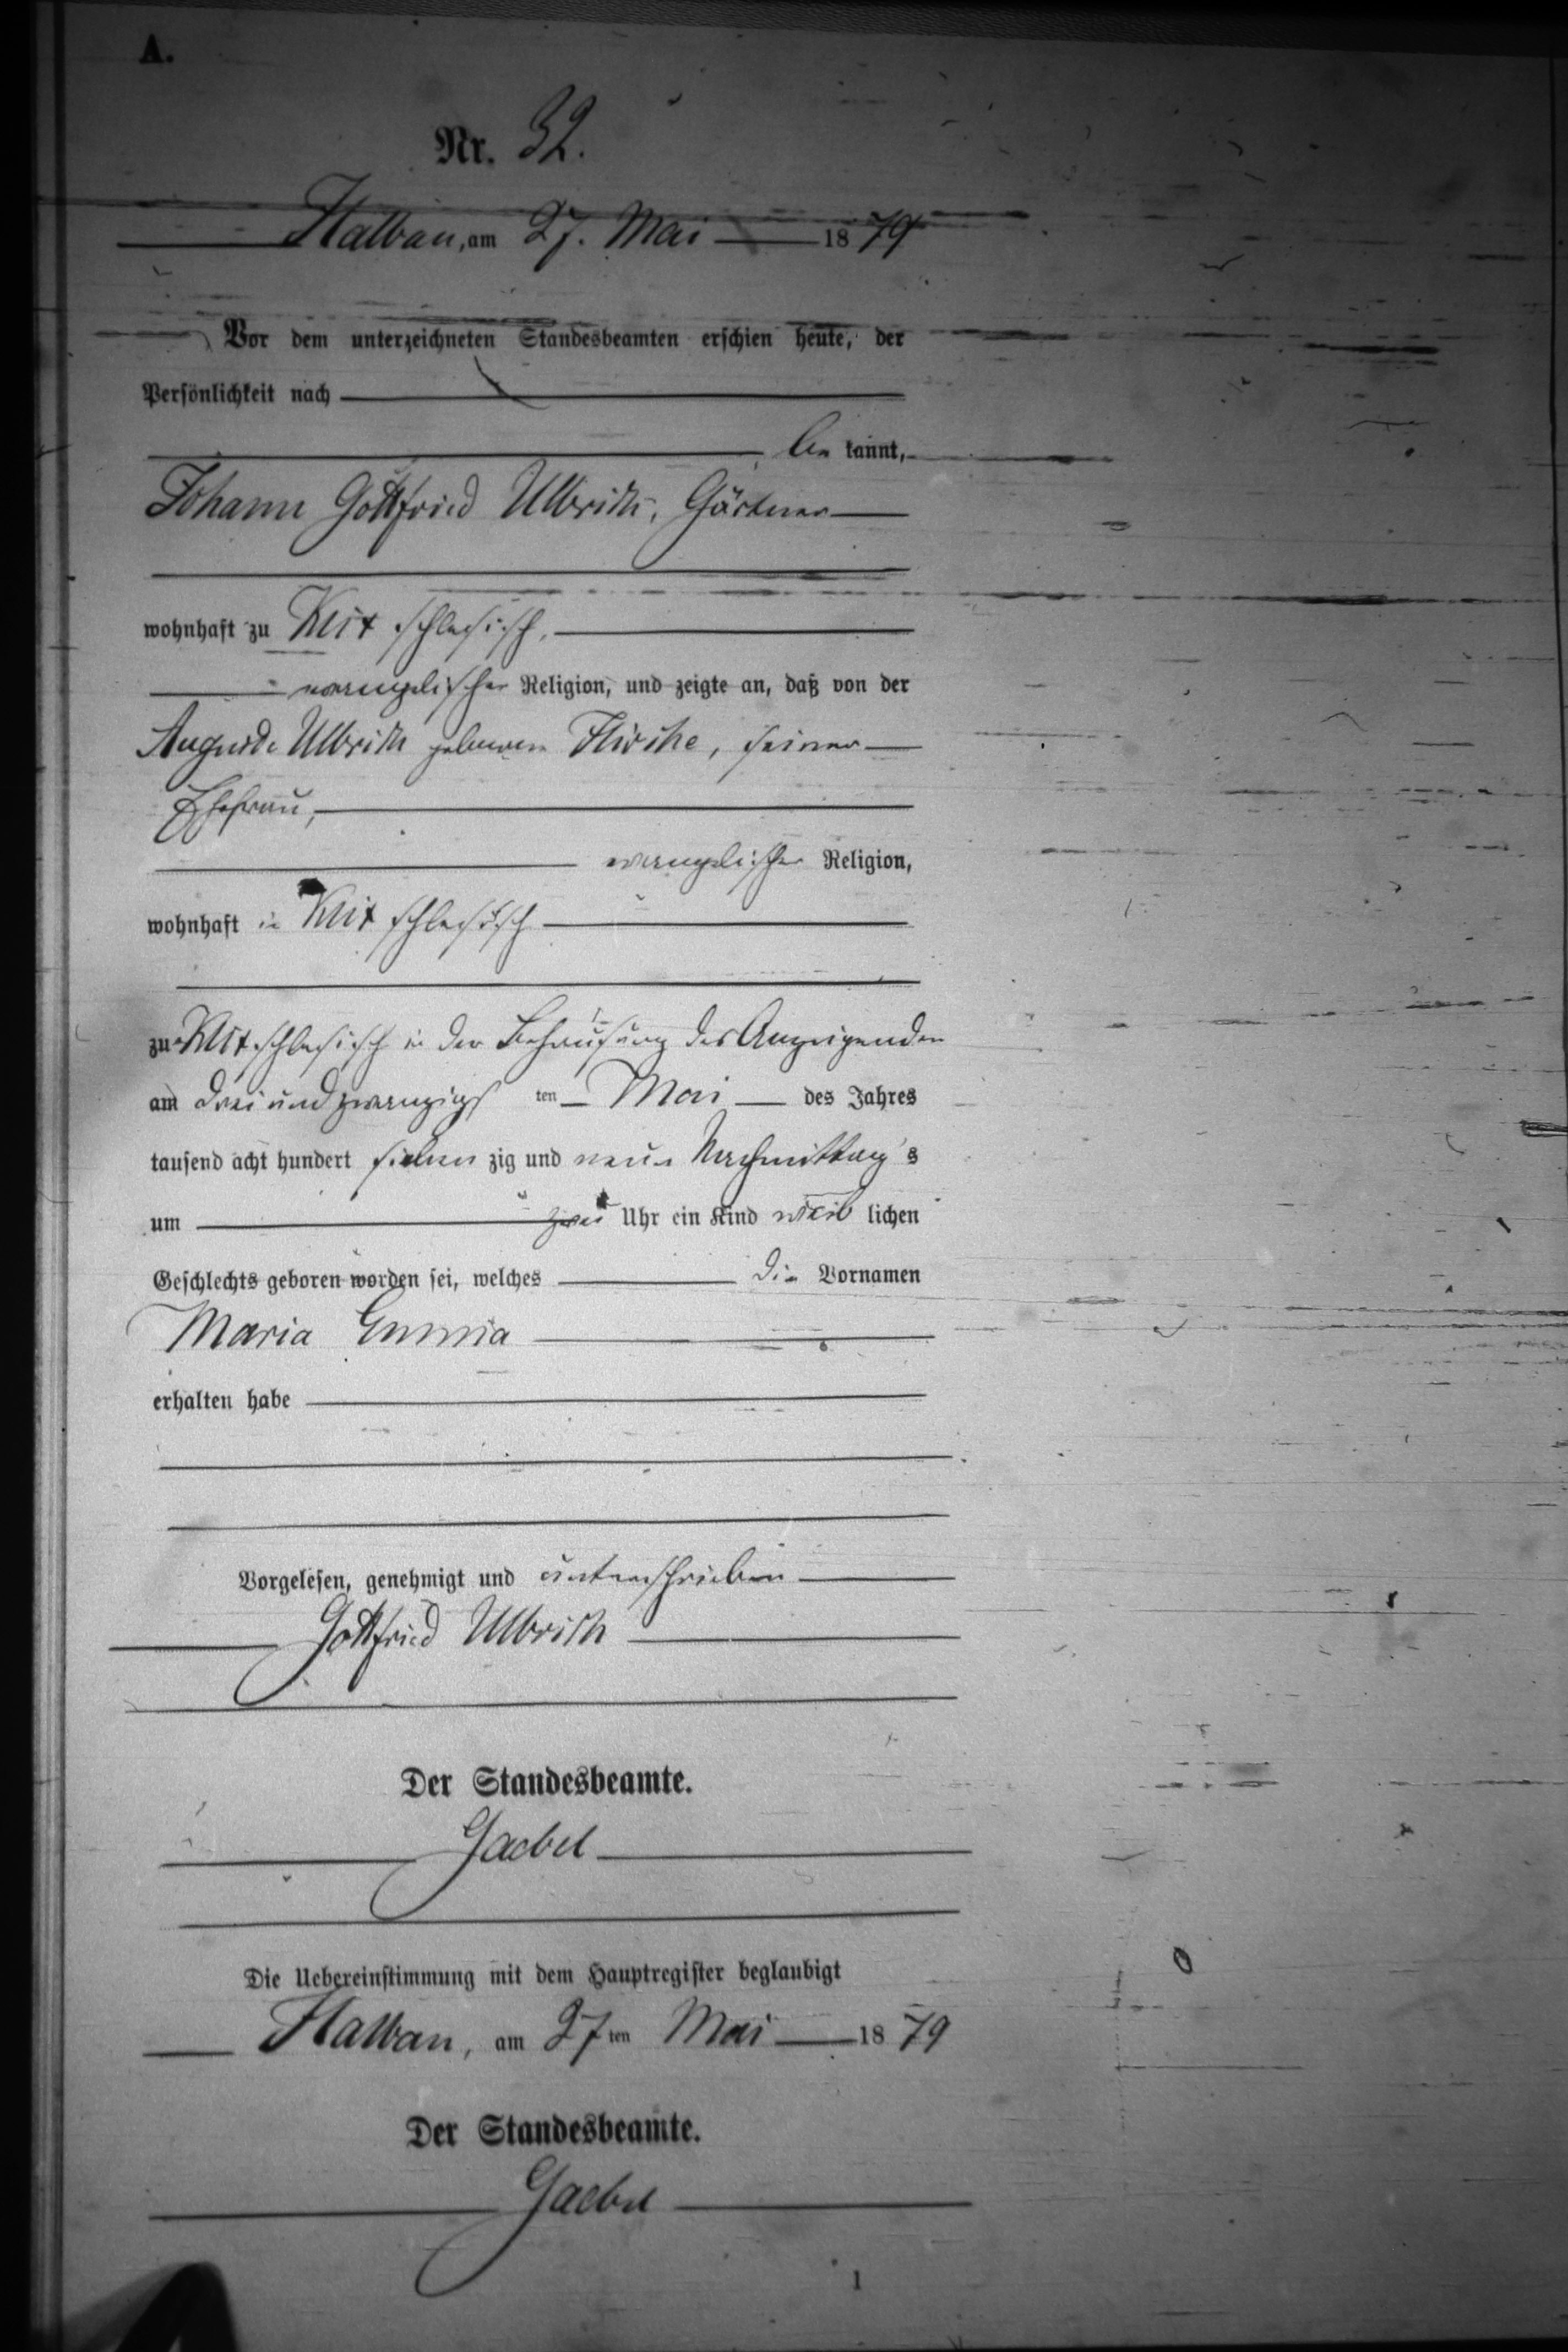 A.
Nr. 32.
Halbau, am 27. Mai 1879
Vor dem unterzeichneten Standesbeamten erschien heute, der
Persönlichkeit nach
be kannt,
Johann Gottfried Ulbrich, Gärtner
wohnhaft zu Klix schlesisch,
evangelischer Religion, und zeigte an, daß von der
Auguste Ulbrich geborene Hirche, seiner
Ehefrau,
evangelischer Religion,
wohnhaft in Klix schlesisch
zu Klix schlesisch in der Behausung des Anzeigenden
am drei und zwanzigs ten Mai des Jahres
tausend acht hundert sieben zig und neun Nachmittag s
um zwei Uhr ein Kind weib lichen
Geschlechts geboren worden sei, welches die Vornamen
Maria Emma
erhalten habe
Vorgelesen, genehmigt und unterschrieben
Gottfried Ulbrich
Der Standesbeamte.
Gaebel
Die Uebereinstimmung mit dem Hauptregister beglaubigt
Halbau, am 27ten Mai 1879
Der Standesbeamte.
Gaebel
1